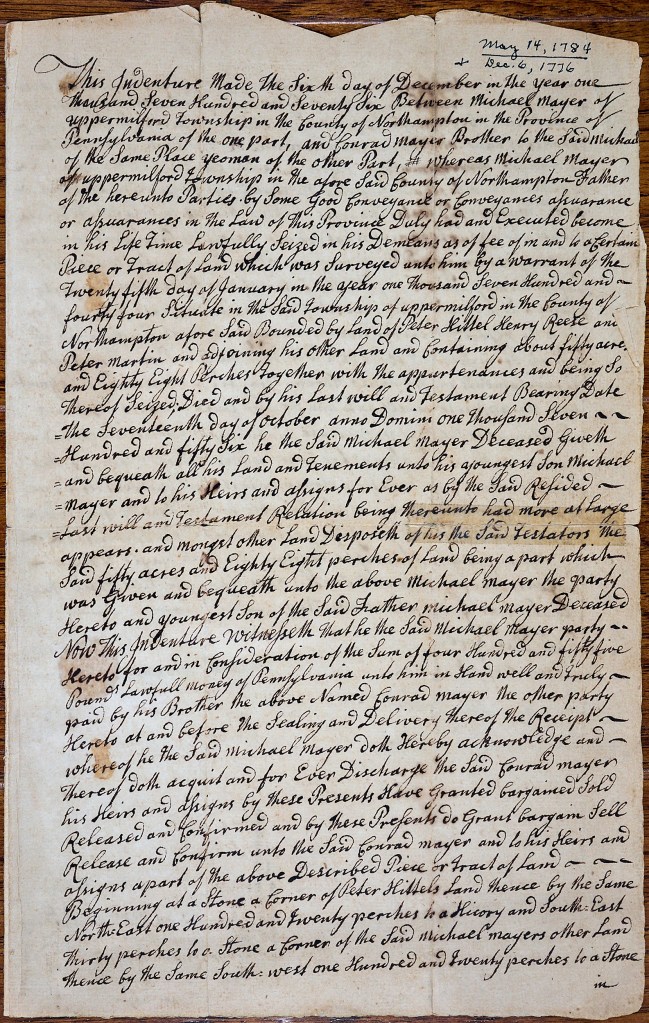 May 14, 1784
+ Dec. 6, 1776
This Indenture Made The Sixth day of December in the year one
Thousand Seven Hundred and Seventy Six Between Michael Mayer of
uppermilford Township in the County of Northampton in the Province of
Pennsylvania of the one part, and Conrad mayer Brother to the Said Michael
of the Same Place yeoman of the other Part, # whereas Michael Mayer
of uppermilford Township in the afore Said County of Northampton Father
of the hereunto Parties by Some Good Conveyance or Conveyances assuarance
or assuarances in the Law of This Province Duly had and Executed become
in his Life Time Lawfully Seized in his Demeans as of fee of in and to a Certain
Piece or Tract of Land which was Surveyed unto him by a warrant of the
Twenty fifth day of January in the year one Thousand Seven Hundred and
fourty four Situate in the Said Township of uppermilford in the County of
Northampton afore Said Bounded by Land of Peter Hittel Henry Reese and
Peter Martin and adjoining his other Land and Containing about fifty acre
and Eighty Eight Perches Together with the appurtenances and being So
Thereof Seized Died and by his Last will and Testament Bearing Date
=the Seventeenth day of October anno Domini one Thousand Seven
=Hundred and fifty Six he the Said Michael Mayer Deceased Giveth
=and bequeath all his Land and Tenements unto his youngest Son Michael
=mayer and to his Heirs and assigns for Ever as by the Said Resided
=Last will and Testament Relation being thereunto had more at large
appears. and mongst other Land Desposeth of his the Said Testators The
Said fifty acres and Eighty Eight perches of Land being a part which
was Given and bequeath unto the above Michael mayer the party
Hereto and youngest Son of the Said Father michael mayer Deceased
Now This Indenture Witnesseth That he the Said Michael Mayer party
Hereto for and in Consideration of the Sum of four Hundred and fifty five
Pounds Lawfull money of Pennsylvania unto him in Hand well and truly
paid by his Brother the above Named Conrad mayer the other party
Hereto at and before the Sealing and Delivery thereof the Receipt
whereof he the Said Michael Mayer doth Hereby acknowledge and
Thereof doth acquit and for Ever Discharge the Said Conrad mayer
his Heirs and assigns by these Presents Have Granted bargained Sold
Released and Confirmed and by these Presents do Grant bargain Sell
Release and Confirm unto the Said Conrad mayer and to his Heirs and
assigns a part of the above Described Piece or Tract of Land
Beginning at a Stone a Corner of Peter Hittels Land thence by the Same
North=East one Hundred and Twenty perches to a Hicory and South=East
thirty perches to a Stone a Corner of the Said michael mayers other Land
thence by the Same South=west one Hundred and Twenty perches to a Stone
in